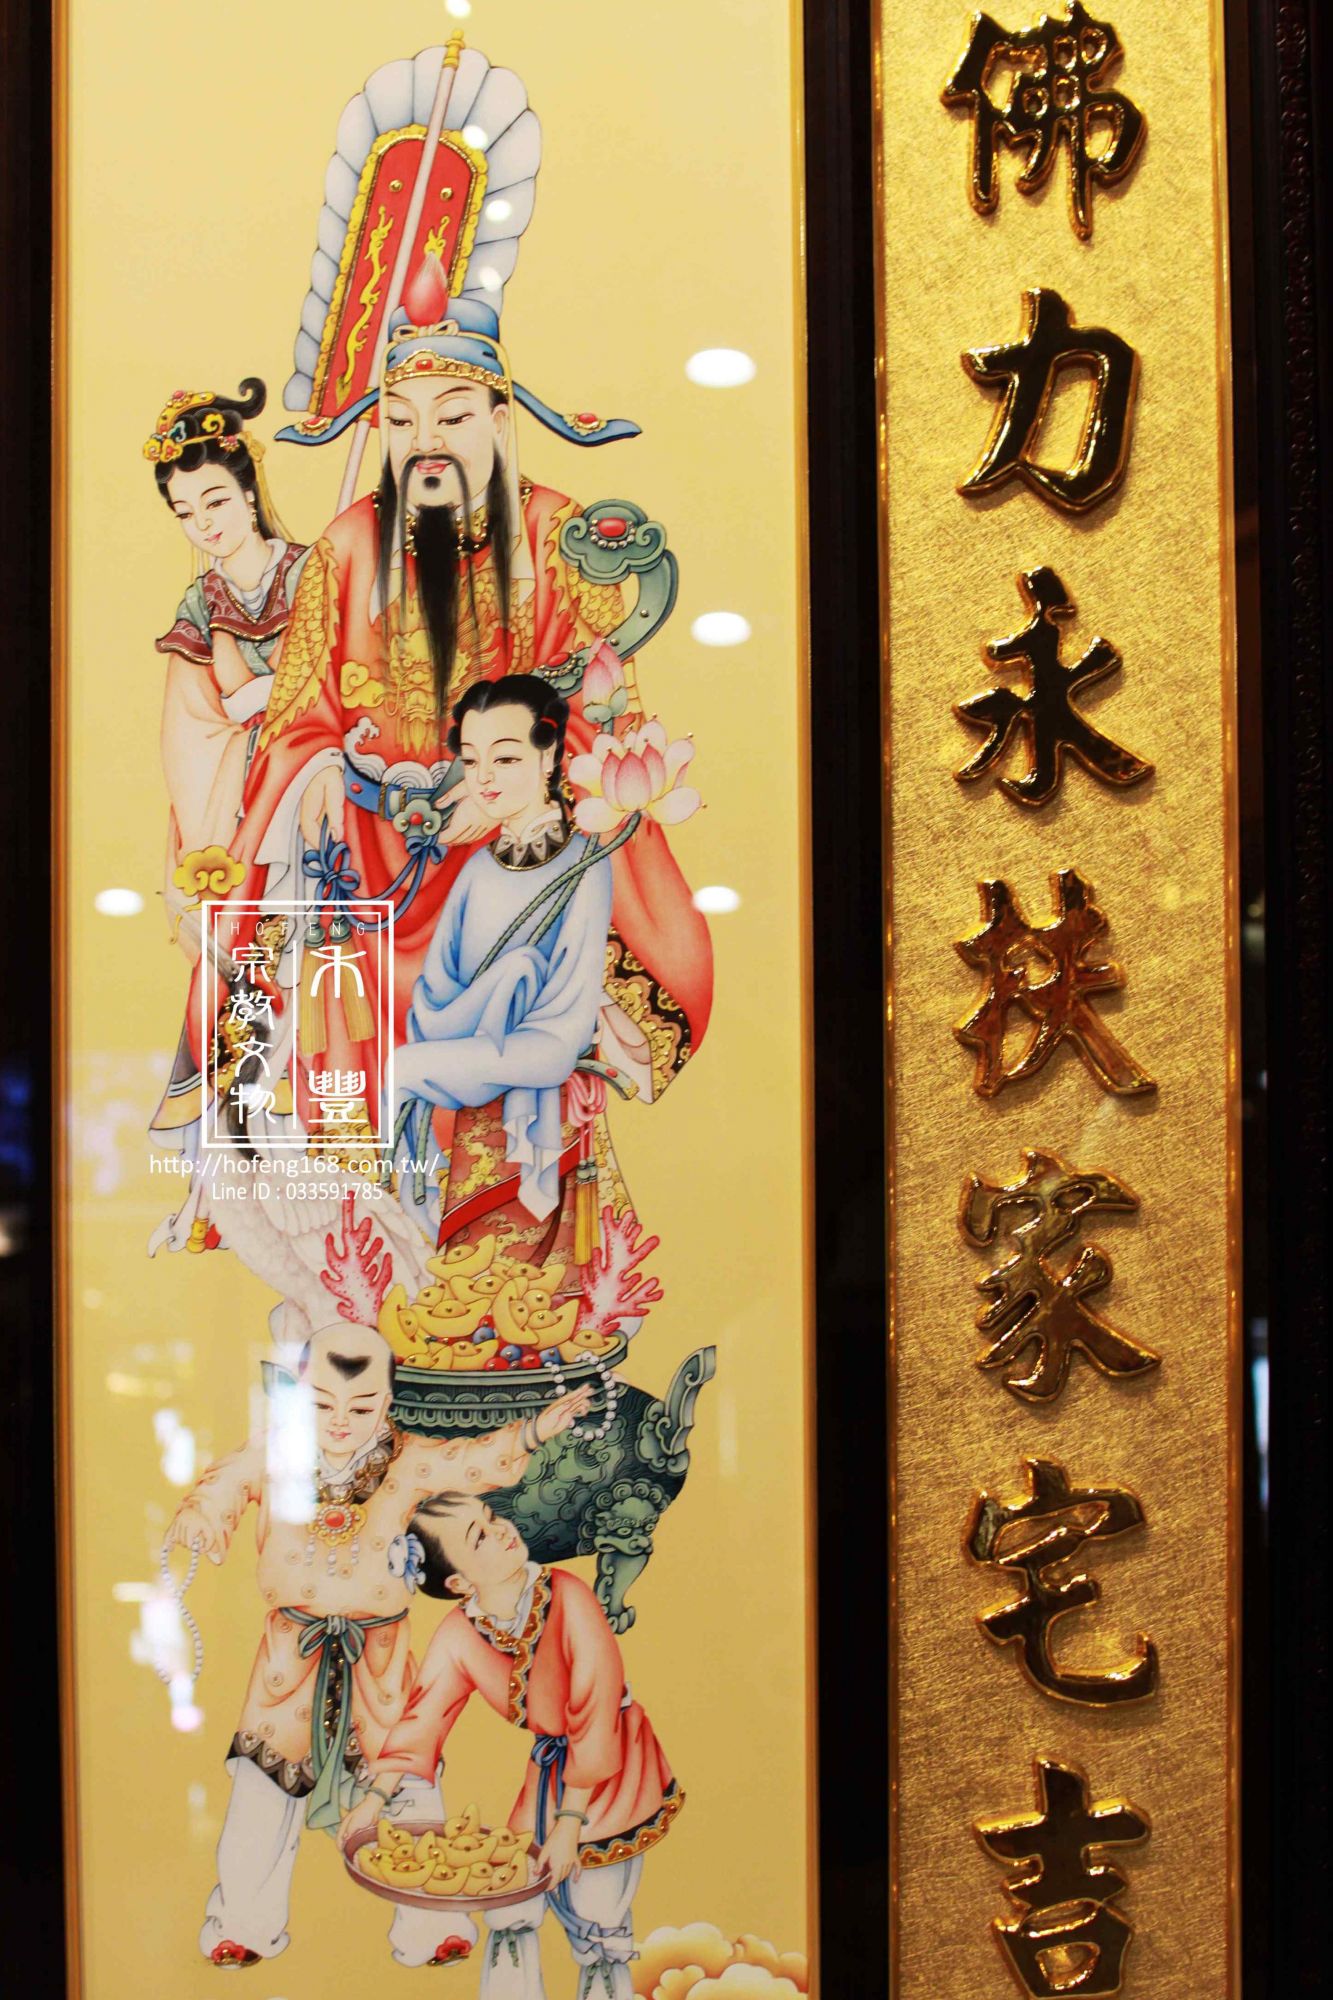 佛力永扶家宅吉
HOFENG
禾豐
宗教文物
http://hofeng168.com.tw/
Line ID : 033591785